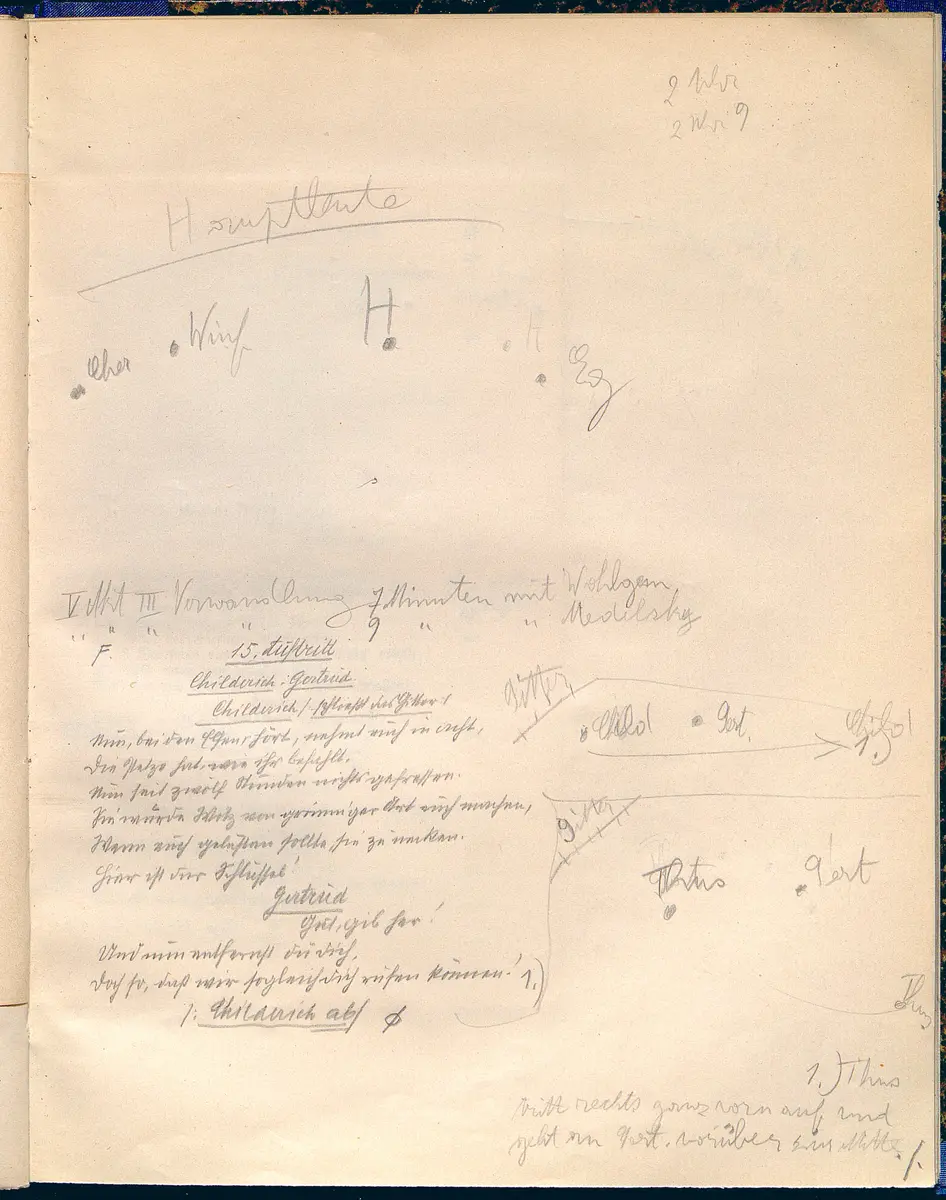 2 Wei
2 Wei 9
Hauptleute
Cher
Winf.
H
H
Eg
V Akt III Verwandlung 7 Minuten mit Wohlgem.
" " " " 9 " " Medelsky
F. 15. Auftritt
Childerich. Gertrud.
Childerich /: schließt das Gitter :/
Nun, bei den Eßen, hört, nehmt euch in acht,
Die Petze hat, wie ihr befehlt,
Nun seit zwölf Stunden nichts gefressen.
Sie würde Witz von grimmiger Art euch machen,
Wenn euch gelüsten sollte, sie zu necken.
Hier ist der Schlüssel!
Gertrud
Gut, gib her!
Und nun entfernst du dich,
Doch so, daß wir sogleich dich rufen können! 1.)
/: Childerich ab :/
Gitter
Child
Gert.
Child
1.)
Gitter
Thus
Gert
Thus
1.) Thus
tritt rechts ganz vorn auf und
geht an Gert. vorüber zur Mitte.